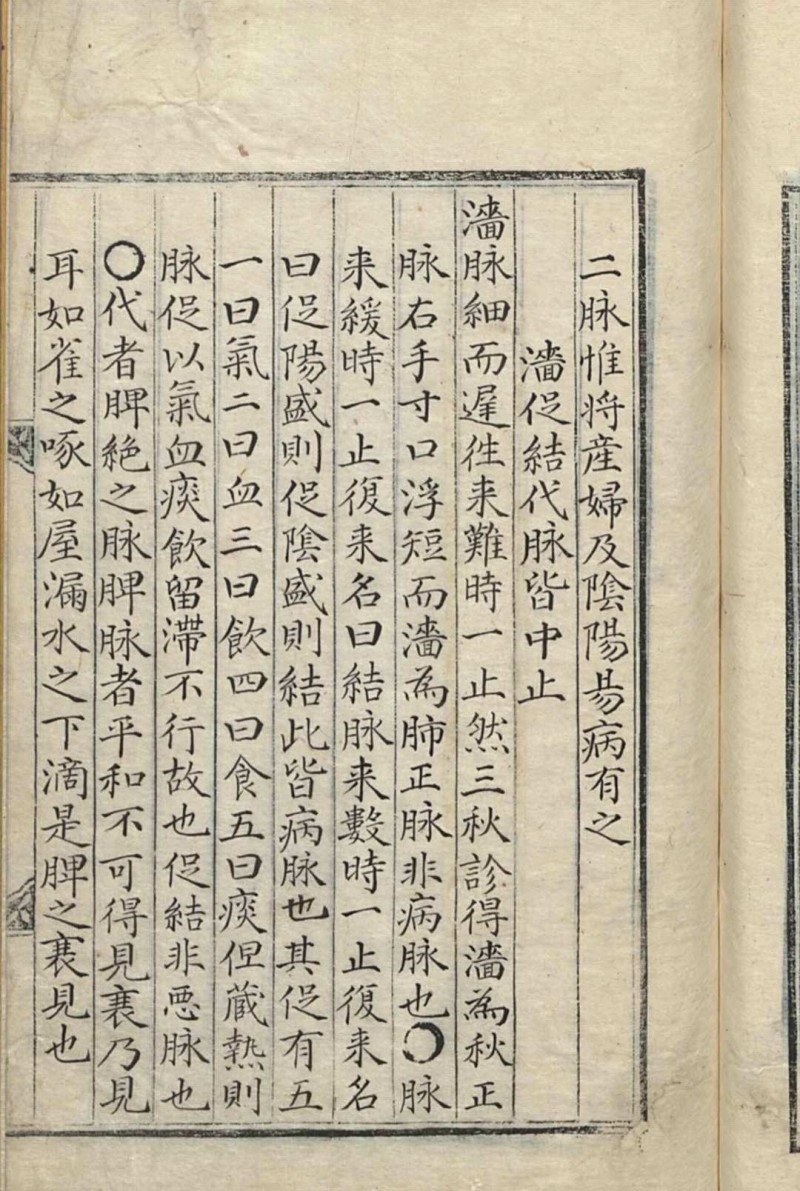 二脉惟将産婦及陰陽昜病有之
濇促結代脉皆中止
濇脉細而遲徃来難時一止然三秋診得濇為秋正
脉右手寸口浮短而濇為肺正脉非病脉也〇脉
来緩時一止復来名曰結脉来數時一止復来名
曰促陽盛則促陰盛則結此皆病脉也其促有五
一曰氣二曰血三曰飲四曰食五曰痰但蔵熱則
脉促以氣血痰飲留滯不行故也促結非惡脉也
〇代者脾絶之脉脾脉者平和不可得見衰乃見
耳如雀之啄如屋漏水之下滴是脾之衰見也